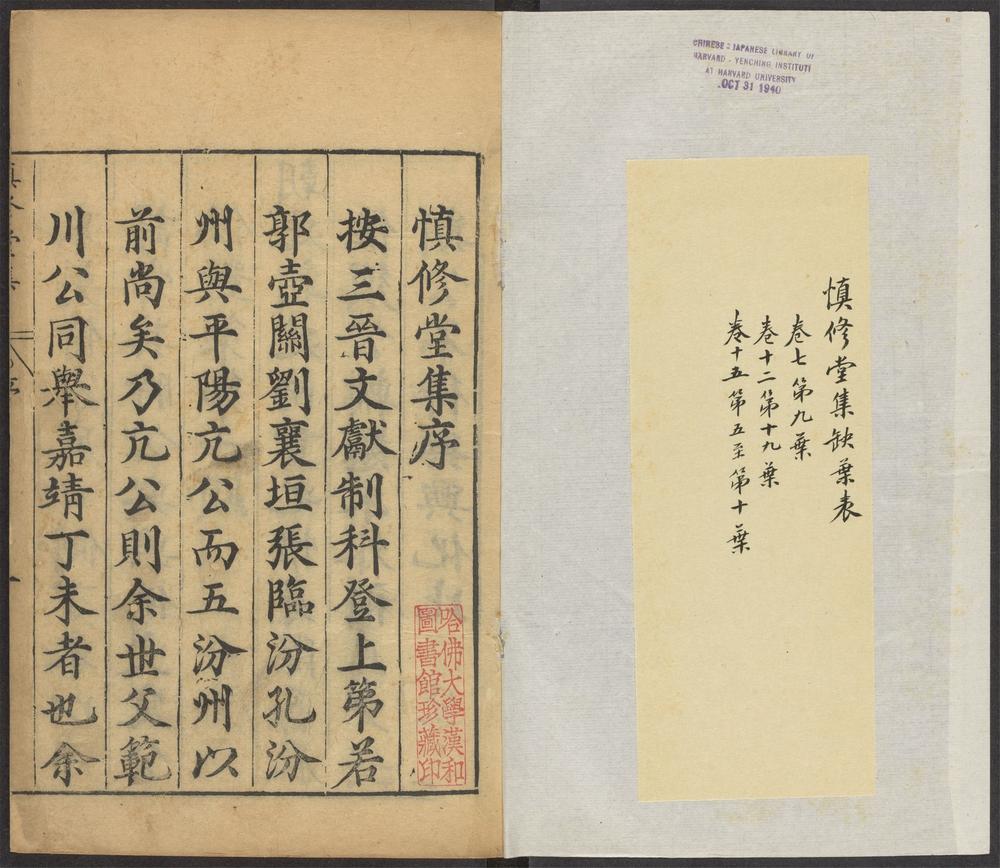 CHINESE - JAPANESE LIBRARY OF
HARVARD - YENCHING INSTITUTE
AT HARVARD UNIVERSITY
OCT 31 1940
慎修堂集缺葉表
卷七第九葉
卷十二第十九葉
卷十五第五至第十葉
慎修堂集序
按三晉文獻制科登上第若
郭壺關劉襄垣張臨汾孔汾
州與平陽亢公而五汾州以
前尚矣乃亢公則余世父範
川公同舉嘉靖丁未者也余
哈佛大學漢和
圖書館珍藏印